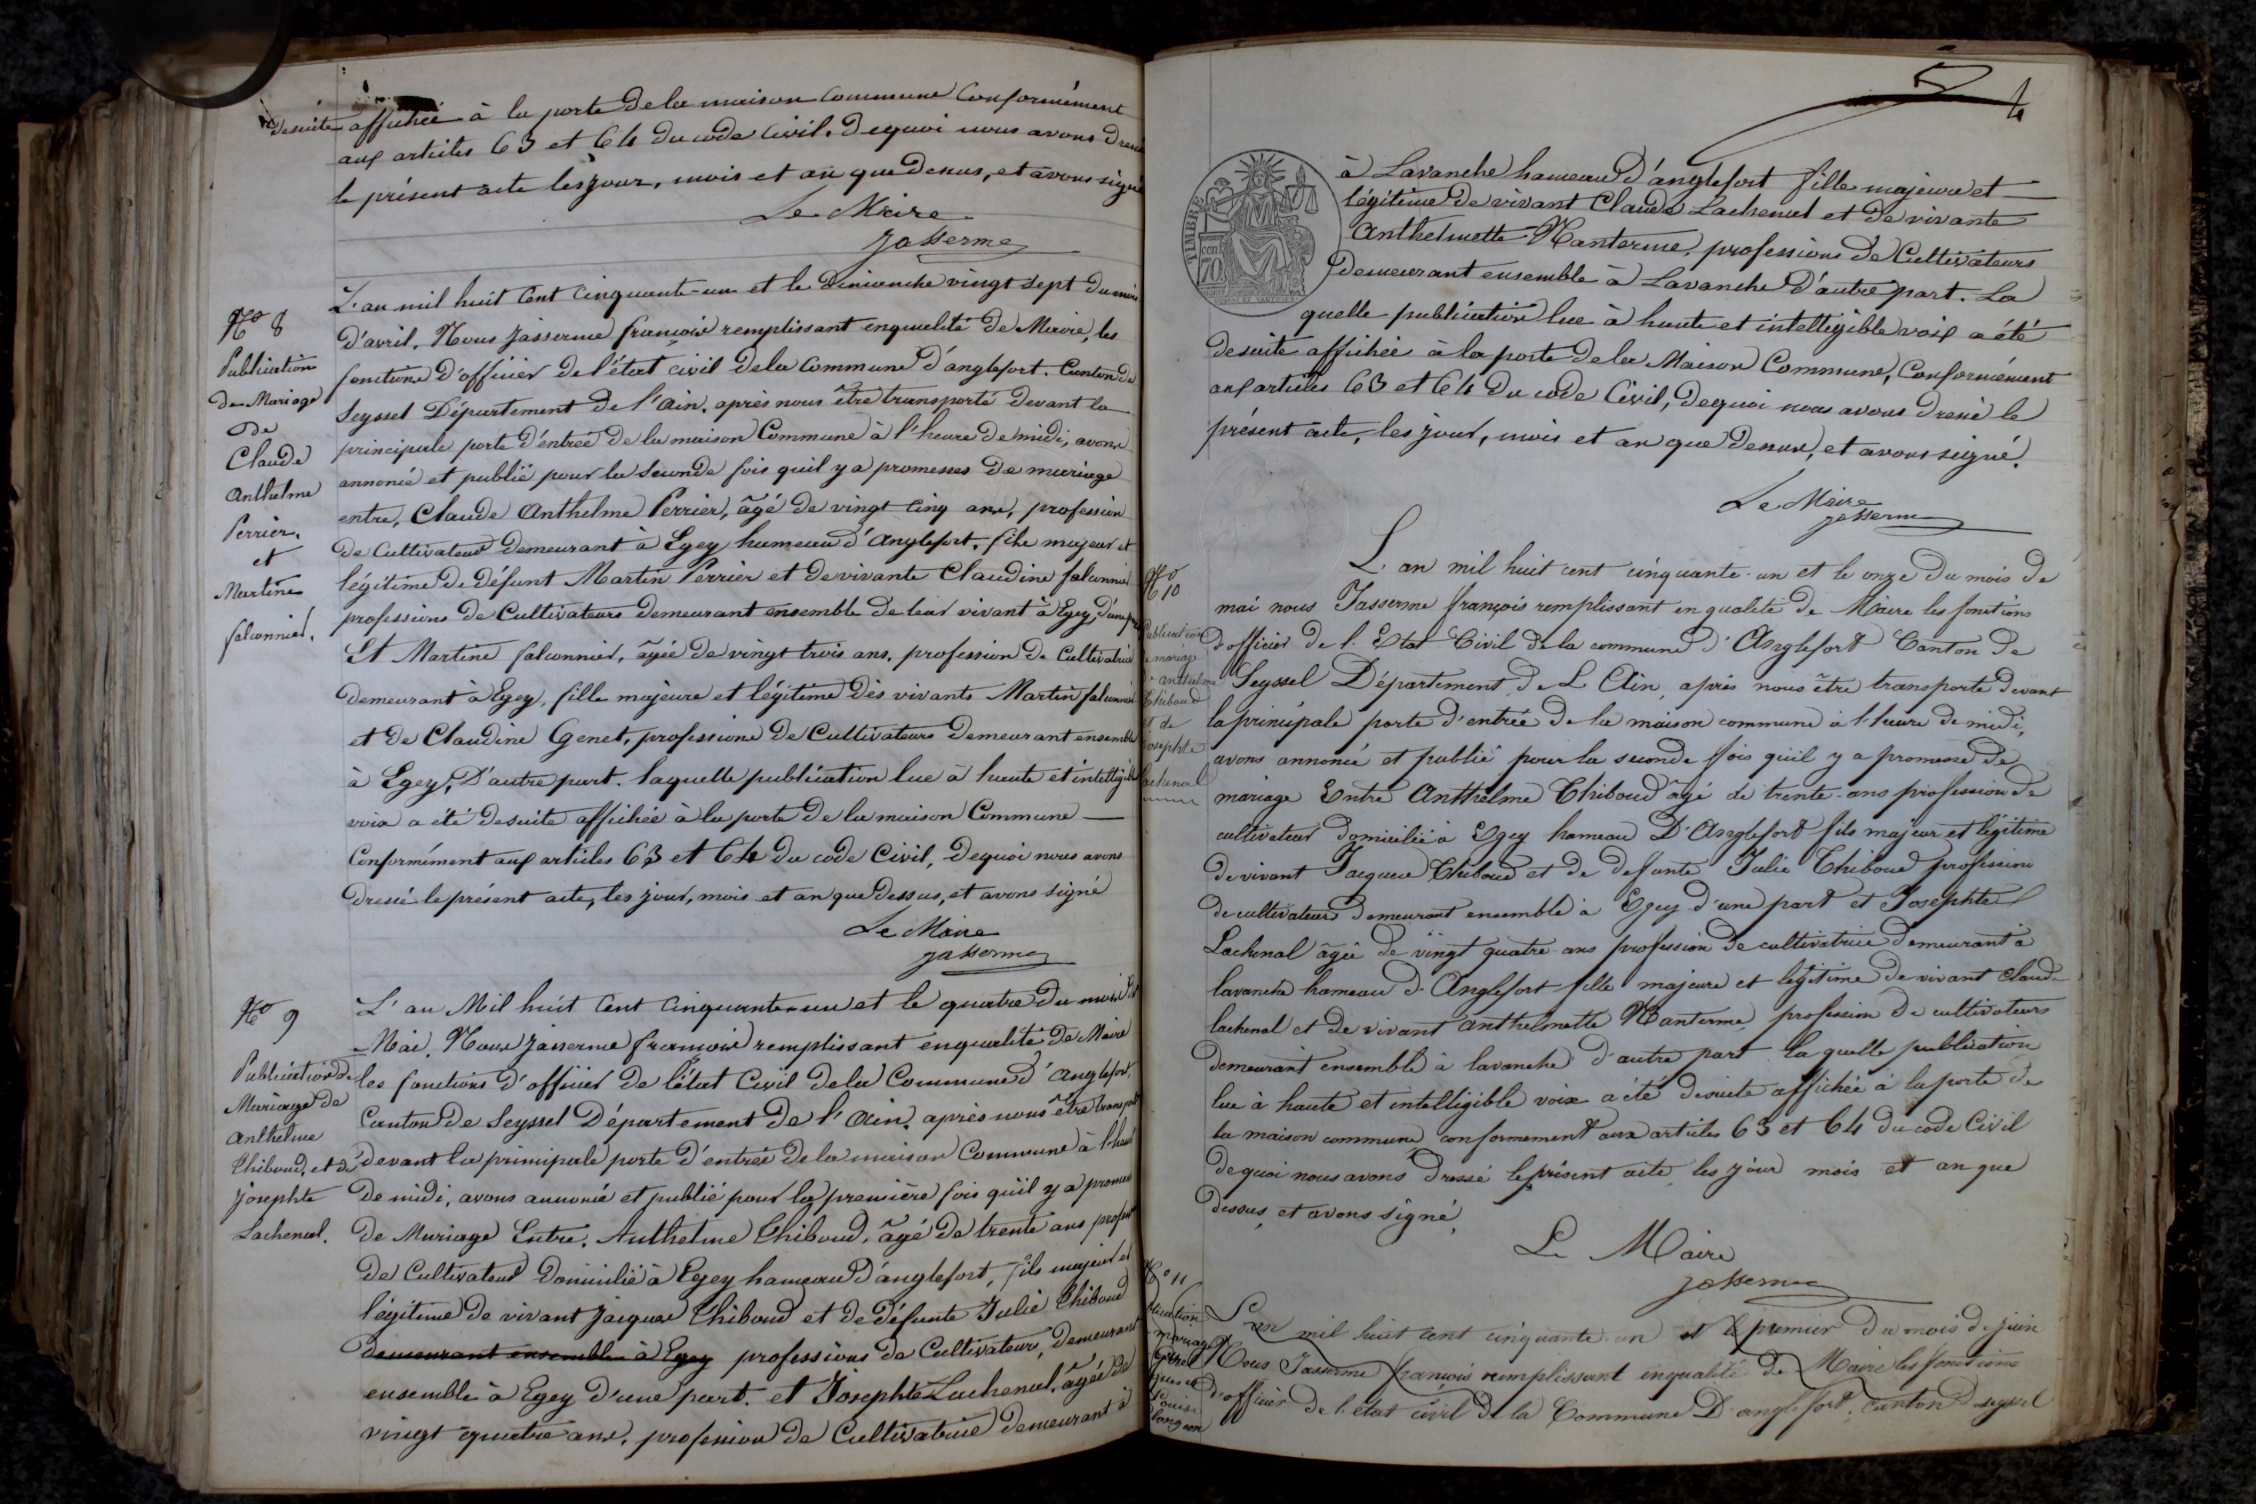 desuite affichée à la porte de la maison commune Conformément
aux articles 63 et 64 du code civil. Dequoi nous avons dressé
le présent acte les jour, mois et an que dessus, et avons signé
Le Maire
Jasserme
N° 8
Publication
de Mariage
de
Claude
Anthelme
Perrier.
et
Martine
falconnier.
L'an mil huit Cent cinquante-un et le Dimanche vingt sept du mois
d'avril. Nous Jasserme françois remplissant enqualité de Maire, les
fonctions d'officier de l'état civil dela Commune d'anglefort. Canton de
Seyssel Département de l'ain. après nous être transporté devant la
principale porte d'entrée de la maison Commune à l'heure de midi, avons
annoncé et publié pour la Seconde fois quil y a promesses de mariage
entre, Claude Anthelme Perrier, âgé de vingt Cinq ans, profession
de Cultivateur demeurant à Egey hameau d'Anglefort. fils majeur et
légitime de défunt Martin Perrier et de vivante Claudine falconnier
professions de Cultivateurs demeurant ensemble de leur vivant à Egey, d'une part
Et Martine falconnier, âgée de vingt trois ans, profession de Cultivatrice
demeurant à Egey, fille majeure et légitime des vivants Martin falconnier
et de Claudine Genet, professions de Cultivateurs demeurant ensemble
à Egey, D'autre part. laquelle publication lue à haute et intelligible
voix a été desuite affichée à la porte de la maison Commune
Conformément aux articles 63 et 64 du code Civil, dequoi nous avons
dressé le présent acte, les jour, mois et an que dessus, et avons signé
Le Maire
Jasserme
N° 9
Publication de
Mariage de
Anthelme
Thiboud, et de
Josephte
Lachenal.
L'an Mil huit Cent Cinquante-un et le quatre du mois de
Mai. Nous Jasserme françois remplissant enqualité de Maire
les fonctions d'officier de l'état Civil dela Commune d'anglefort,
Canton de Seyssel Département de l'Ain. après nous être transporté
devant la principale porte d'entrée de la maison Commune à l'heure
de midi, avons annoncé et publié pour la première fois qu'il y a promesse
de Mariage Entre. Anthelme Thiboud, âgé de trente ans profession
de Cultivateur domicilié à Egey hameau d'anglefort, fils majeur et
légitime de vivant Jacques Thiboud et de défunte Julie Thiboud
demeurant ensemble à Egey professions de Cultivateurs, demeurant
ensemble à Egey d'une part. et Josephte Lachenal, âgée de
vingt quatre ans, profession de Cultivatrice demeurant à
4
TIMBRE
70
à Lavanche hameau d'anglefort fille majeure et
légitime de vivant Claude Lachenal et de vivante
Anthelmette Nanterme, professions de Cultivateurs
demeurant ensemble à Lavanche d'autre part. La
quelle publication lue à haute et intelligible voix a été
desuite affichée à la porte de la Maison Commune, Conformément
aux articles 63 et 64 du code Civil, dequoi nous avons dressé le
présent acte, les jour, mois et an que dessus, et avons signé.
Le Maire
Jasserme
N° 10
Publication
de mariage
anthelme
Thiboud
et de
Josephte
Lachenal
L'an mil huit cent cinquante-un et le onze du mois de
mai nous Jasserme françois remplissant en qualité de Maire les fonctions
d'officier de l'Etat Civil de la commune d'Anglefort Canton de
Seyssel Département de L'Ain, après nous être transporté devant
la principale porte d'entrée de la maison commune à l'heure de midi,
avons annoncé et publié pour la seconde fois qu'il y a promesse de
mariage Entre Anthelme Thiboud âgé de trente-ans profession de
cultivateur domicilié à Egey hameau D'Anglefort fils majeur et légitime
de vivant Jacques Thiboud et de defunte Julie Thiboud profession
de cultivateurs demeurant ensemble à Egey d'une part et Josephte
Lachenal âgée de vingt quatre ans profession de cultivatrice demeurant à
lavanche hameau d'Anglefort fille majeure et légitime de vivant Claude
lachenal et de vivant anthelmette Nanterme profession de cultivateurs
demeurant ensemble à lavanche d'autre part la quelle publication
lue à haute et intelligible voix a été desuite affichée à la porte de
la maison commune conformement aux articles 63 et 64 du code Civil
de quoi nous avons dressé le présent acte les jour mois et an que
dessus et avons signé.
Le Maire
Jasserme
N° 11
mariage
Louise
L'an mil huit cent cinquante-un et le premier du mois de juin
Nous Jasserme françois remplissant enqualité de Maire les fonctions
d'officier de l'etat civil de la Commune D'anglefort, canton de seyssel